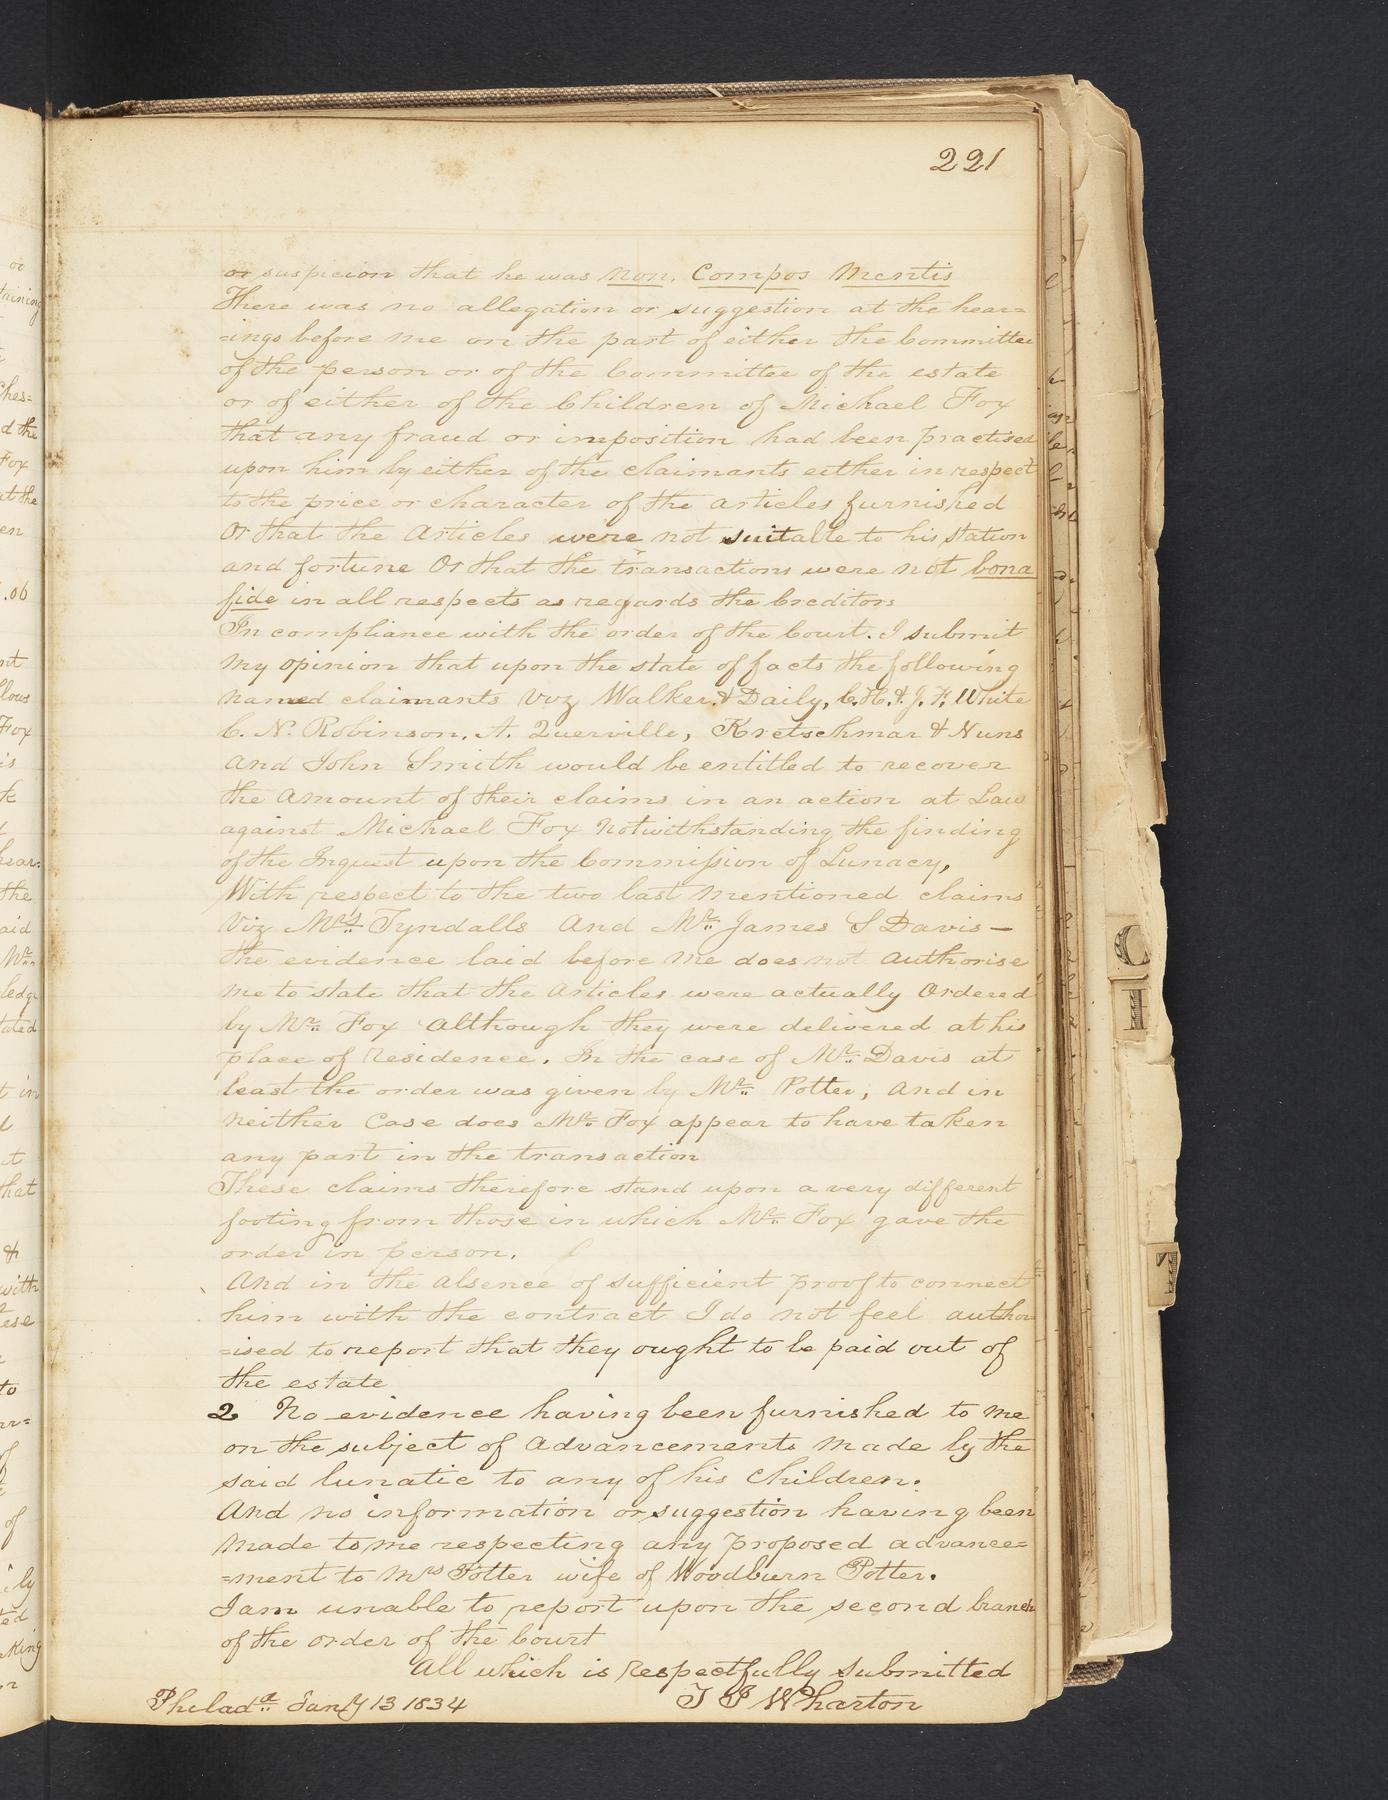 221
or suspicion that he was non. Compos Mentis
There was no allegation or suggestion at the hear=
=ings before me on the part of either the Committee
of the person or of the Committee of the estate
or of either of the Children of Michael Fox
that any fraud or imposition had been practised
upon him by either of the claimants either in respect
to the price or character of the articles furnished
Or that the Articles were not suitable to his station
and fortune Or that the transactions were not bona
fide in all respects as regards the Creditors
In compliance with the order of the Court. I submit
My opinion that upon the state of facts the following
named claimants Viz Walker & Daily, C. H. & J. F. White
C. N. Robinson, A. Querville, Kretschmar & Nuns
And John Smith would be entitled to recover
the Amount of their claims in an action at Law
against Michael Fox Notwithstanding the finding
of the Inquest upon the Commission of Lunacy,
With respect to the two last Mentioned claims
Viz Mrs Tyndalls And Mr. James S Davis —
The evidence laid before Me does not Authorise
Me to state that the Articles were actually Ordered
by Mr. Fox Although they were delivered at his
place of Residence. In the case of Mr. Davis at
least the order was given by Mr. Potter, And in
Neither Case does Mr. Fox appear to have taken
any part in the transaction
These claims therefore stand upon a very different
footing from those in which Mr. Fox gave the
order in person.
And in the Absence of sufficient proof to connect
him with the contract I do not feel author
=ised to report that they ought to be paid out of
the estate
2 No evidence having been furnished to Me
on the subject of Advancements Made by the
said lunatic to any of his Children.
And no information or suggestion having been
Made to me respecting any proposed advance=
=ment to Mrs Potter wife of Woodburn Potter.
I am unable to report upon the second branch
of the Order of the Court
All which is Respectfully Submitted
Philada. Jany 13 1834 T I Wharton